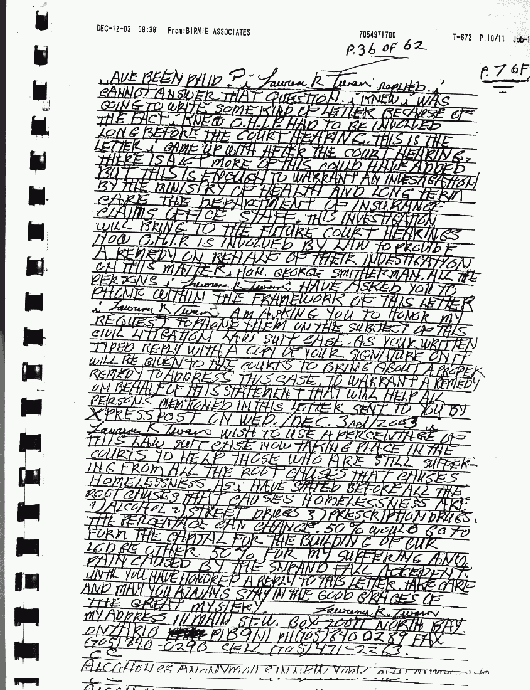 DEC-12-03 09:39 From:BIRNIE ASSOCIATES 7054971700 T-672 P.10/11
P.36 OF 62
P.7 OF
HAVE BEEN PAID? i, Lawrence R. replied, i
CANNOT ANSWER THAT QUESTION. i KNEW i WAS
GOING TO WRITE SOME KIND OF LETTER BECAUSE OF
THE FACT i KNEW O.H.I.P HAD TO BE INVOLVED
LONG BEFORE THE COURT HEARING. THIS IS THE
LETTER i CAME UP WITH AFTER THE COURT HEARING.
THERE IS A LOT MORE OF THIS COULD HAVE ADDED
BUT THIS IS ENOUGH TO WARRANT AN INVESTIGATION
BY THE MINISTRY OF HEALTH AND LONG TERM
CARE THE DEPARTMENT OF INSURANCE
CLAIMS OFFICE STAFF. THIS INVESTIGATION
WILL BRING TO THE FUTURE COURT HEARINGS
HOW O.H.I.P. IS INVOLVED BY LAW TO PROVIDE
A REMEDY ON BEHALF OF THEIR INVESTIGATION
ON THIS MATTER. HON. GEORGE SMITHERMAN. ALL THE
PERSONS i, Lawrence R. HAVE ASKED YOU TO
PHONE WITHIN THE FRAMEWORK OF THIS LETTER
i, Lawrence R. AM ASKING YOU TO HONOR MY
REQUEST TO PHONE THEM ON THE SUBJECT OF THIS
CIVIL LITIGATION LAW SUIT CASE. AS YOUR WRITTEN
TYPED REPLY WITH A COPY OF YOUR SIGNATURE ON IT
WILL BE GIVEN TO THE COURTS TO BRING ABOUT A PROPER
REMEDY TO ADDRESS THIS CASE, TO WARRANT A REMEDY
ON BEHALF OF THIS STATEMENT THAT WILL HELP ALL
PERSONS MENTIONED IN THIS LETTER SENT TO YOU BY
XPRESSPOST ON WED./DEC. 3rd/2003. i,
Lawrence R. WISH TO USE A PERCENTAGE OF
THIS LAW SUIT CASE NOW TAKING PLACE IN THE
COURTS TO HELP THOSE WHO ARE STILL SUFFER-
ING FROM ALL THE ROOT CAUSES THAT CAUSES
HOMELESSNESS AS i HAVE STATED BEFORE ALL THE
ROOT CAUSES THAT CAUSES HOMELESSNESS ARE
1) ALCOHOL 2) STREET DRUGS 3) PRESCRIPTION DRUGS.
THE PERCENTAGE CAN CHANGE. 50% WOULD GO TO
FORM THE CAPITAL FOR THE BUILDING OF OUR
LODGE OTHER 50% FOR MY SUFFERING AND
PAIN CAUSED BY THE SLIP AND FALL ACCIDENT.
UNTIL YOU HAVE HONORED A REPLY TO THIS LETTER TAKE CARE
AND MAY YOU ALWAYS STAY IN THE GOOD GRACES OF
THE GREAT MYSTERY. Lawrence R.
MY ADDRESS 111 MAIN ST. W. BOX 20077 NORTH BAY
ONTARIO P1B9N1 PH(705) 840 0289 FAX
(705) 840-0290 CELL (705) 471-2263.
C C
ALCOHOLICS ANONYMOUS IN NEW YORK